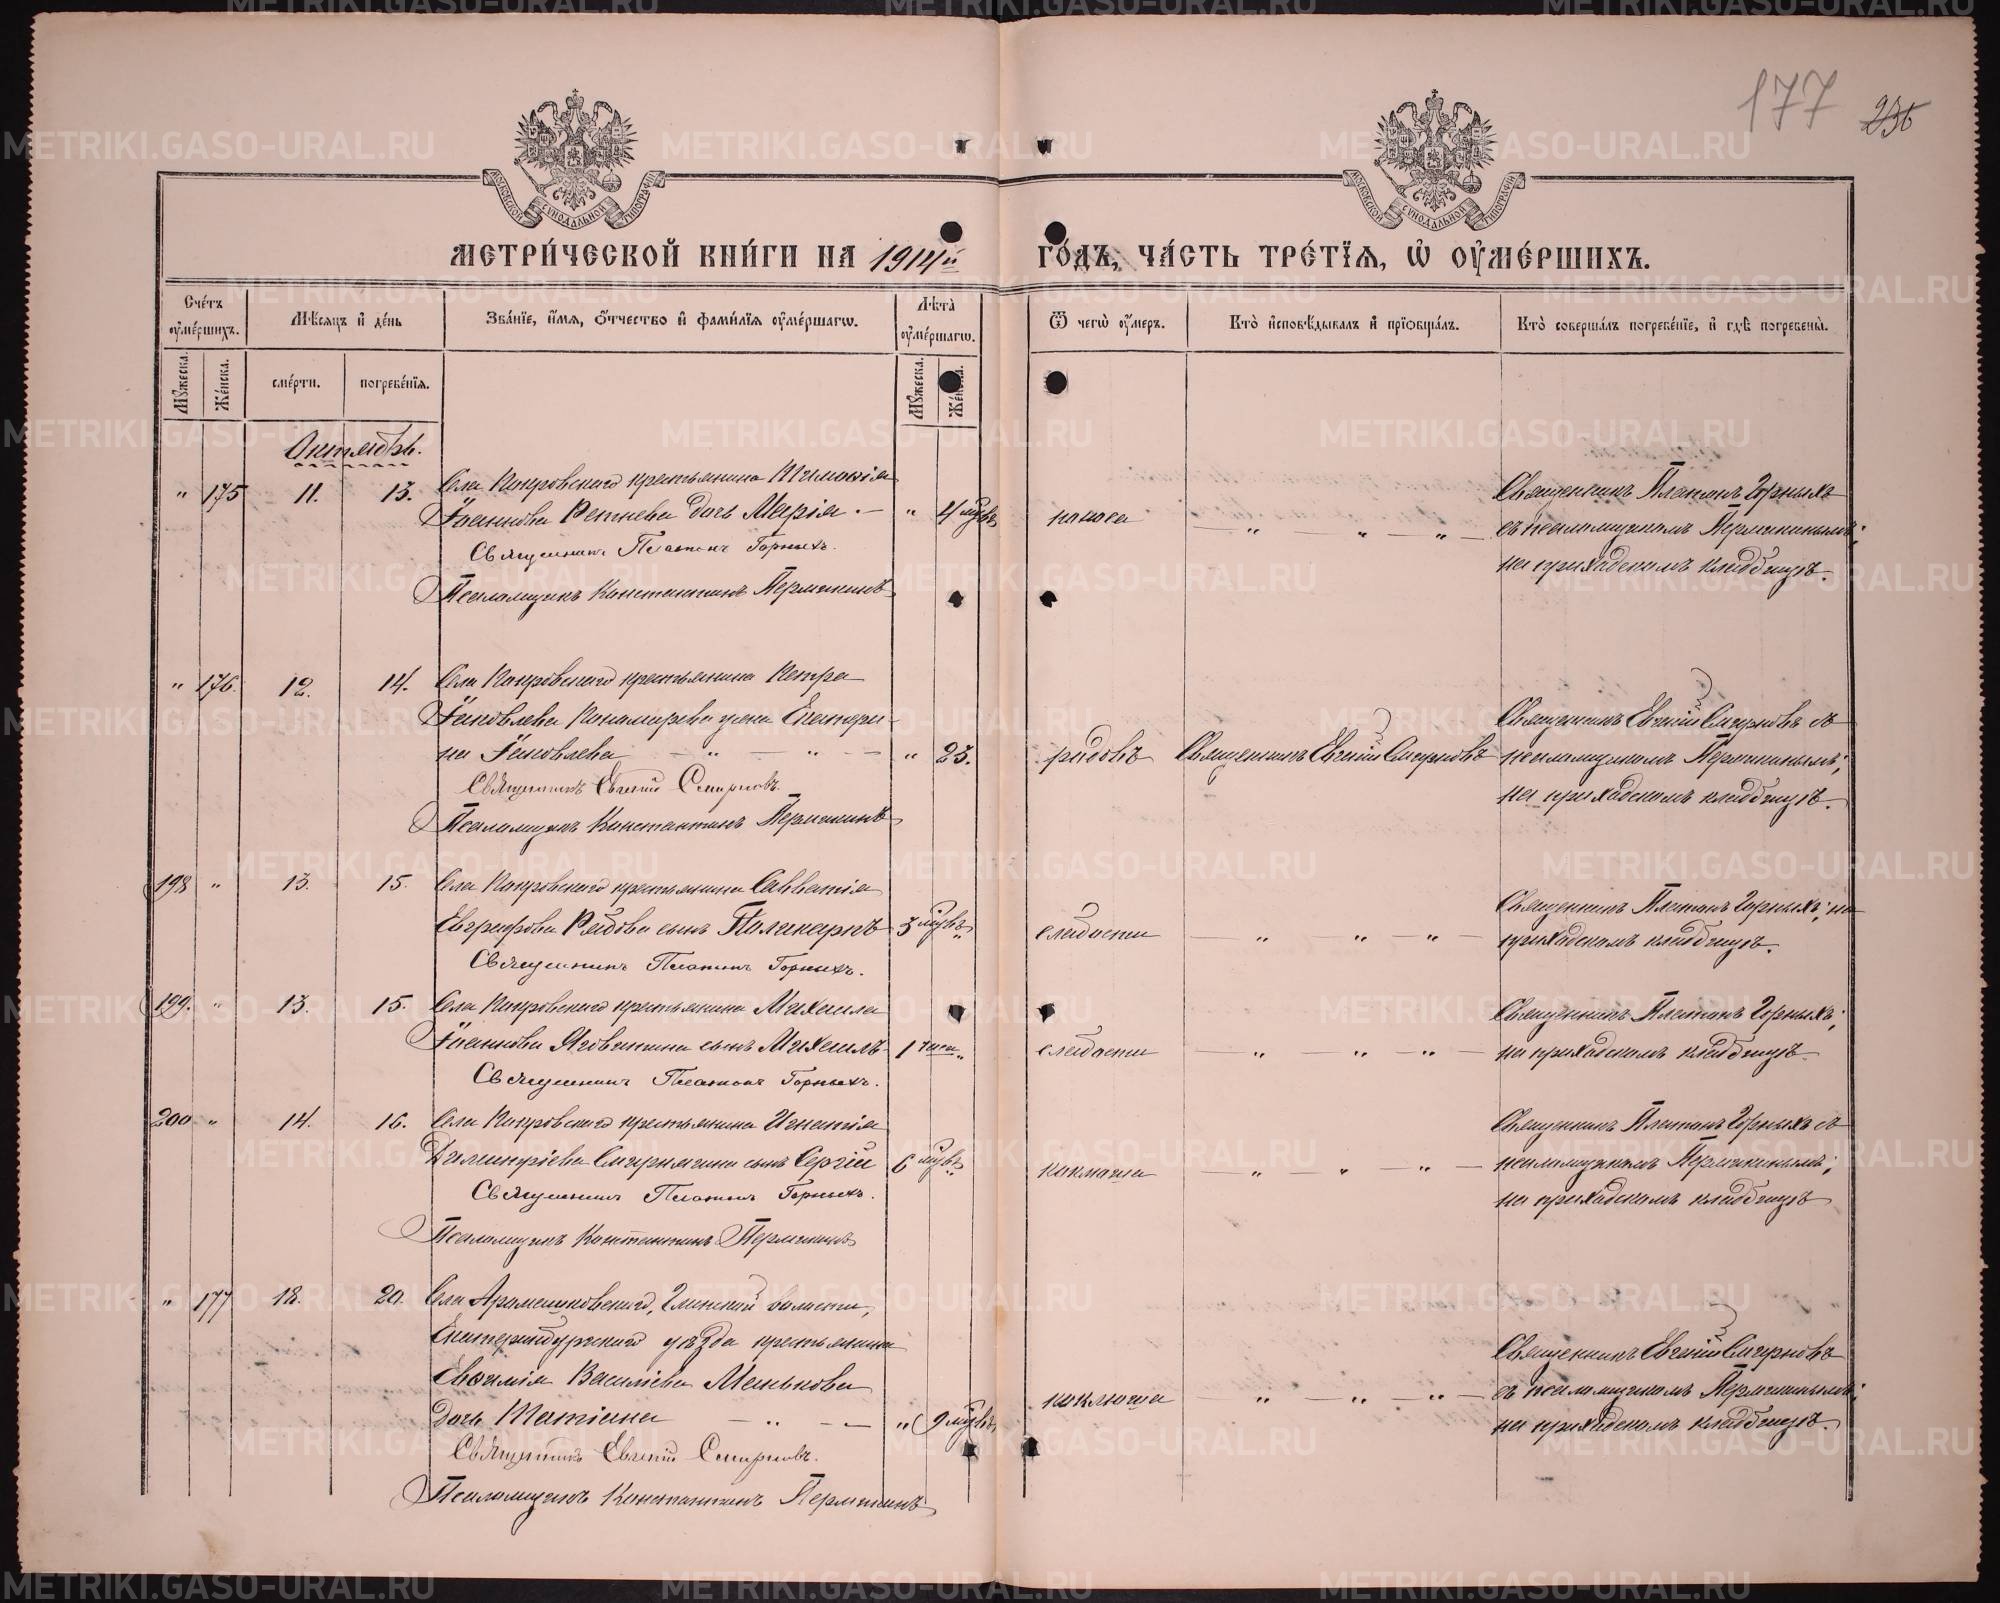 177 236
МОСКОВСКОЙ СУНОДАЛЬНОЙ ТИПОГРАФІИ
МОСКОВСКОЙ СУНОДАЛЬНОЙ ТИПОГРАФІИ
МЕТРИ́ЧЕСКОЙ КНИ́ГИ НА 1914й ГО́ДЪ, ЧА́СТЬ ТРЕ́ТЇѦ, Ѡ҆ ОУ҆МЕ́РШИХЪ.
Сче́тъ оу҆ме́ршихъ.
Мѣ́сяцъ и҆ де́нь
Зва́нїе, и҆́мѧ, ѻ҆́тчество и҆ фамі́лїѧ оу҆ме́ршагѡ.
Лѣ̀та оу҆ме́ршагѡ.
Ѿ чегѡ̀ оу҆́меръ.
Кто̀ и҆сповѣ́дывалъ и҆ прїѡбща́лъ.
Кто̀ соверша́лъ погребе́нїе, и҆ гдѣ̀ погребены̀.
Мꙋ́жеска.
Же́нска.
сме́рти.
погребе́нїѧ.
Мꙋ́жеска.
Же́нска.
Октябрь.
" 175 11. 13. Села Покровскаго крестьянина Тимоѳія
Іоаннова Репнева дочь Марія. — " 4 мѣс. поноса — " — " — " — Священникъ Платонъ Горныхъ
съ псаломщикомъ Пермикинымъ;
на приходскомъ кладбищѣ.
Священникъ Платонъ Горныхъ.
Псаломщикъ Константинъ Пермикинъ
" 176. 12. 14. Села Покровскаго крестьянина Петра
Іаковлева Пономарева жена Екатери-
на Іаковлева — " — " — " 23. родовъ Священникъ Евгеній Смирновъ Священникъ Евгеній Смирновъ съ
псаломщикомъ Пермикинымъ;
на приходскомъ кладбищѣ.
Священникъ Евгеній Смирновъ.
Псаломщикъ Константинъ Пермикинъ
198 " 13. 15. Села Покровскаго крестьянина Савватія
Евграфова Рябова сынъ Поликарпъ 3 мѣс. " слабости — " — " — " — Священникъ Платонъ Горныхъ; на
приходскомъ кладбищѣ.
Священникъ Платонъ Горныхъ.
199. " 13. 15. Села Покровскаго крестьянина Михаила
Іоаннова Яговитина сынъ Михаилъ 1 часа " слабости — " — " — " — Священникъ Платонъ Горныхъ;
на приходскомъ кладбищѣ.
Священникъ Платонъ Горныхъ.
200 " 14. 16. Села Покровскаго крестьянина Игнатія
Димитріева Смирнягина сынъ Сергій 6 мѣс. " коклюша — " — " — " — Священникъ Платонъ Горныхъ съ
псаломщикомъ Пермикинымъ;
на приходскомъ кладбищѣ
Священникъ Платонъ Горныхъ.
Псаломщикъ Константинъ Пермикинъ
" 177 18. 20. Села Арамашковскаго, Глинской волости,
Екатеринбургскаго уѣзда крестьянина
Евѳимія Василіева Манькова
дочь Татіана — " — — " 9 мѣс. коклюша — " — " — " — Священникъ Евгеній Смирновъ
съ псаломщикомъ Пермикинымъ;
на приходскомъ кладбищѣ.
Священникъ Евгеній Смирновъ.
Псаломщикъ Константинъ Пермикинъ